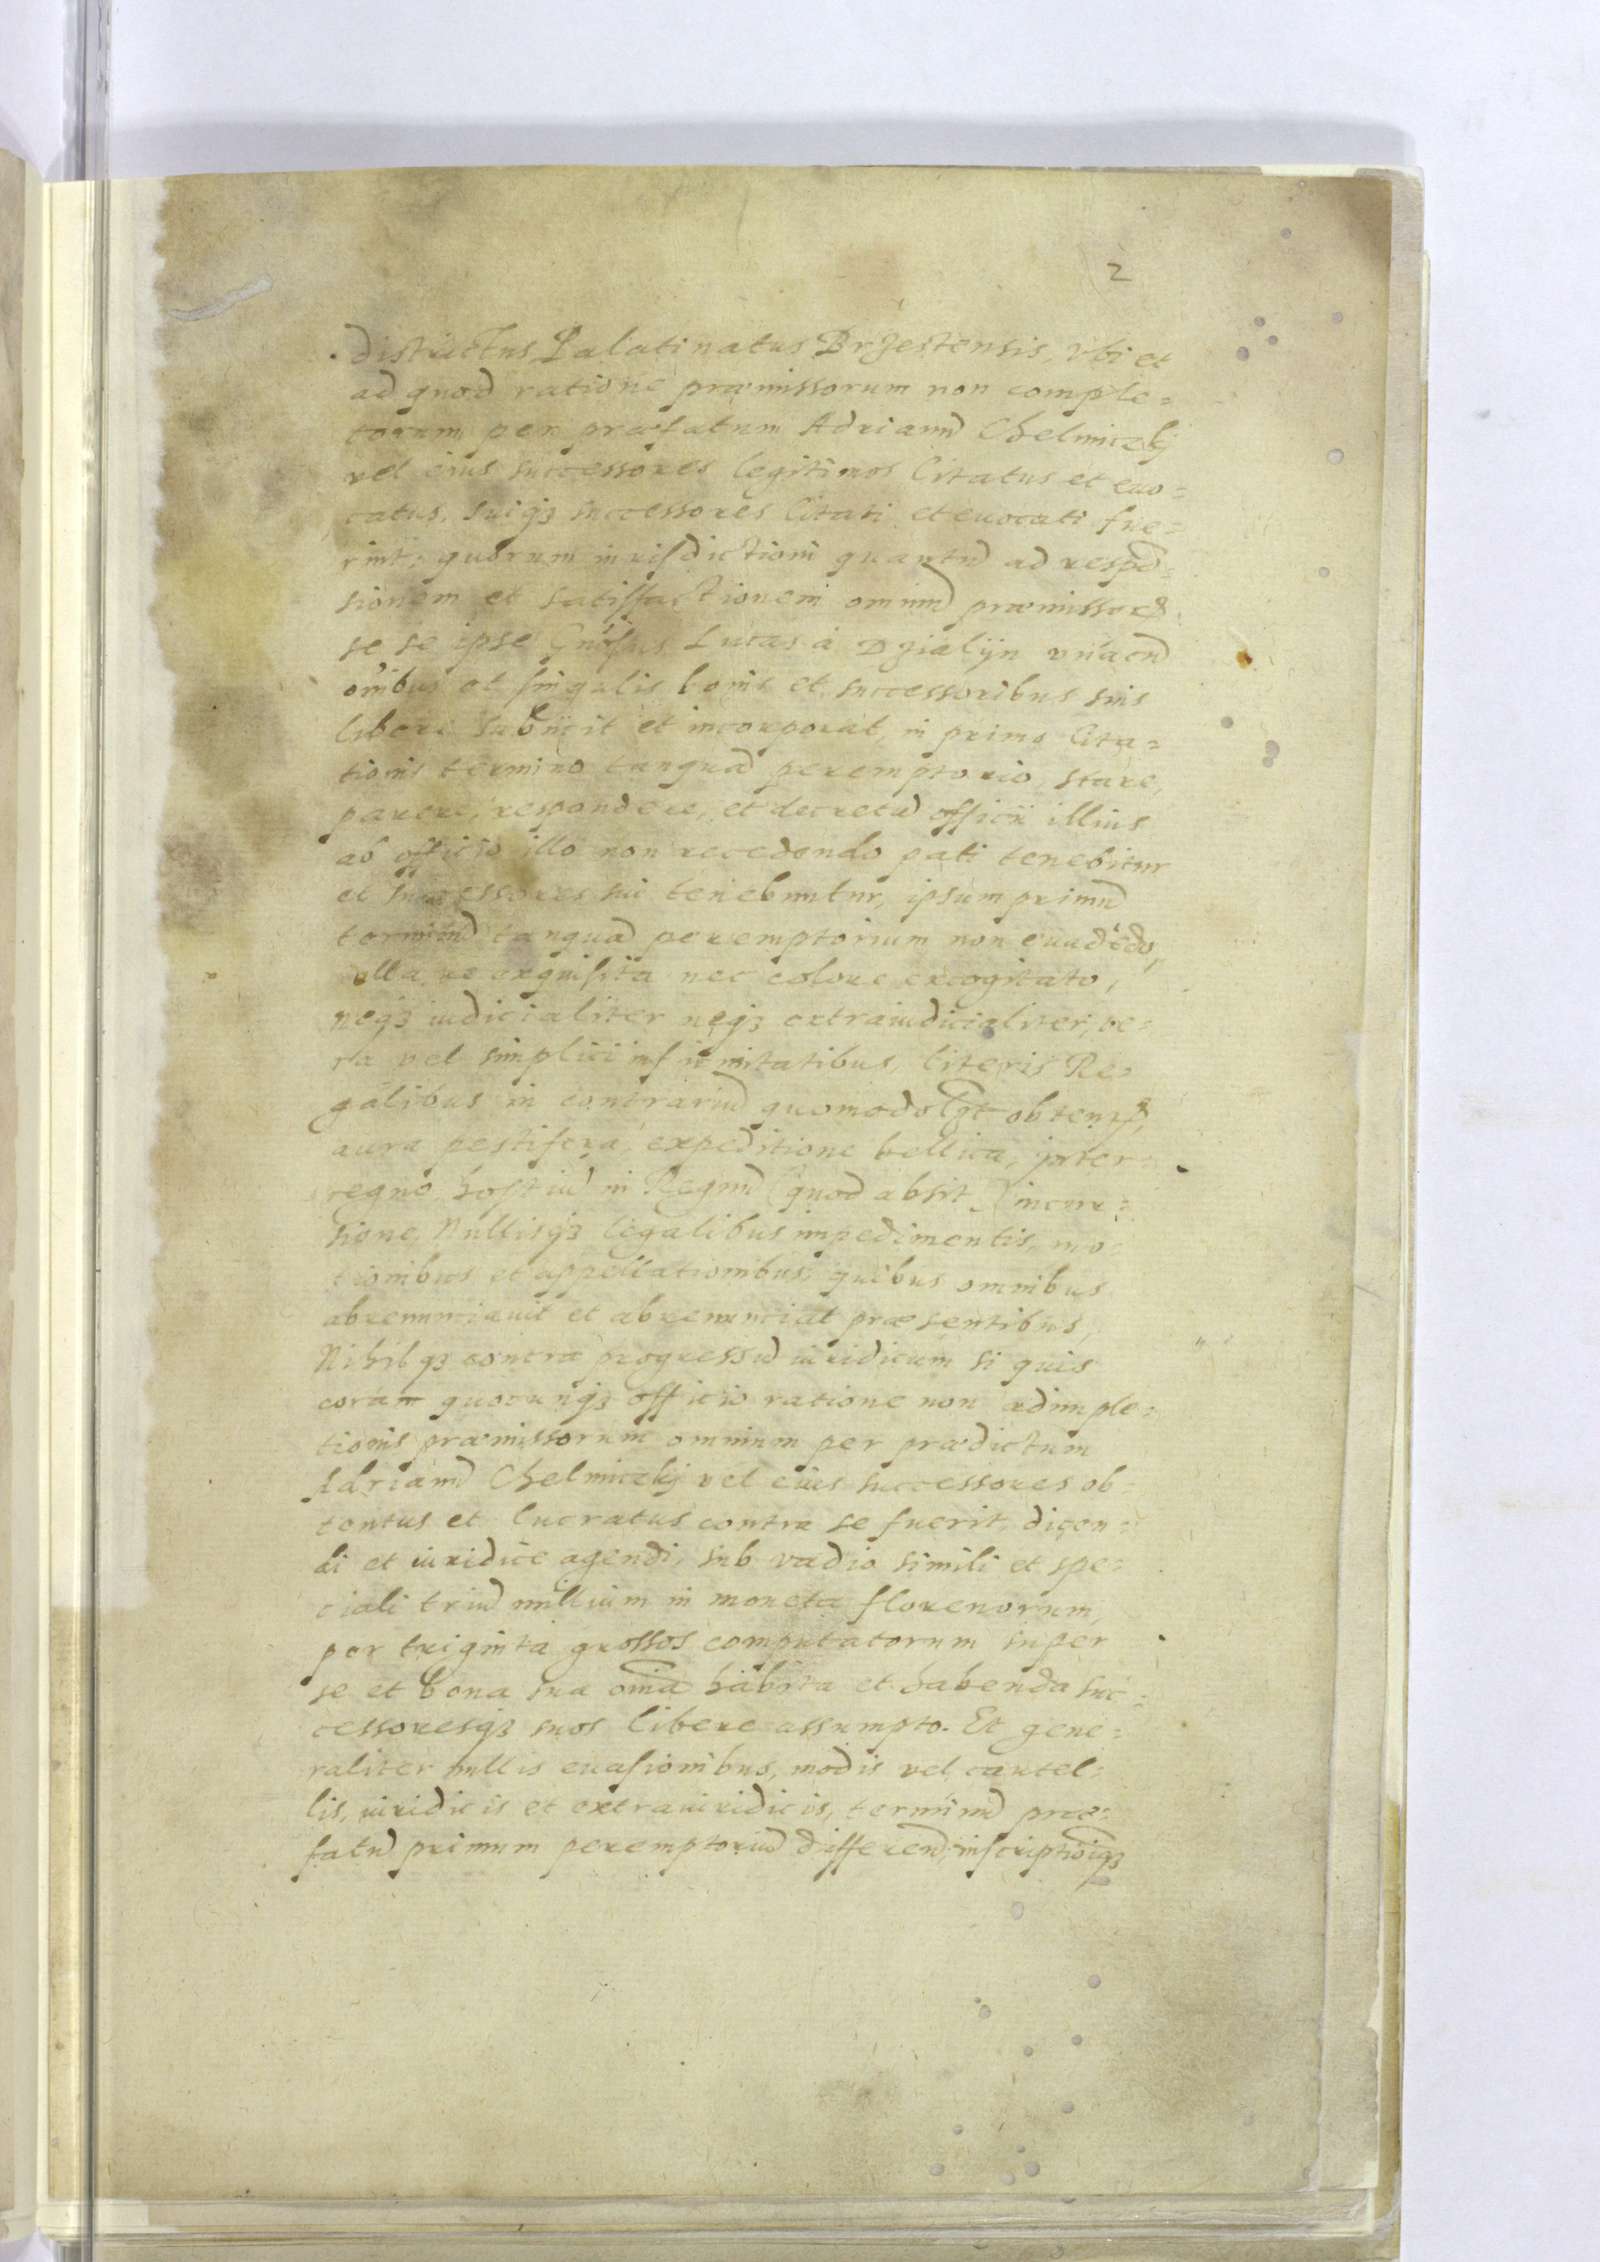 2
districtus Palatinatus Brzestensis, vbi et
ad quod ratione præmissorum non comple=
torum per præfatum Adrianū Chelmiczkj
vel eius successores legitimos Citatus et euo=
catus, suiqꝫ successores Citati et euocati fue=
rint, quorum iurisdictioni quantū ad respō=
sionem et satisfactionem omniū præmissorꝝ
se se ipse Gnōsus Lucas à Dzialijn vnacū
omībus et singulis bonis et successoribus suis
libere subijcit et incorporat, in primo Cita=
tionis termino tanquā peremptorio, stare,
parere, respondere, et decretū officii illius
ab officio illo non recedendo pati tenebitur
et successores sui tenebuntur, ipsum primū
terminū tanquā peremptorium non euadēdo,
ulla re exquisita nec colore excogitato,
neqꝫ iudicialiter neqꝫ extraiudicialiter, ve=
ra vel simplici infirmitatibus, literis Re=
galibus in contrariū quomodolꝫt obtentꝭ,
aura pestifera, expeditione bellica, inter=
regno, hostiū in Regnū (quod absit) incur=
sione, Nullisqꝫ legalibus impedimentis, mo=
tionibus et appellationibus, quibus omnibus
abrenunciauit et abrenunciat præsentibus,
Nihilqꝫ contra progressū iuridicum si quis
coram quocunqꝫ officio ratione non adimple=
tionis præmissorum omnium per prædictum
Adrianū Chelmiczkj vel eius successores ob=
tentus et lucratus contra se fuerit, dicen=
di et iuridice agendi, sub vadio simili et spe=
ciali triū millium in moneta florenorum,
per triginta grossos computatorum super
se et bona sua omīa habita et habenda suc=
cessoresqꝫ suos libere assumpto. Et gene=
raliter nullis euasionibus, modis vel cautel=
lis, iuridicis et extraiuridicis, terminū præ=
fatū primum peremptoriū differend, inscriptioīqꝫ